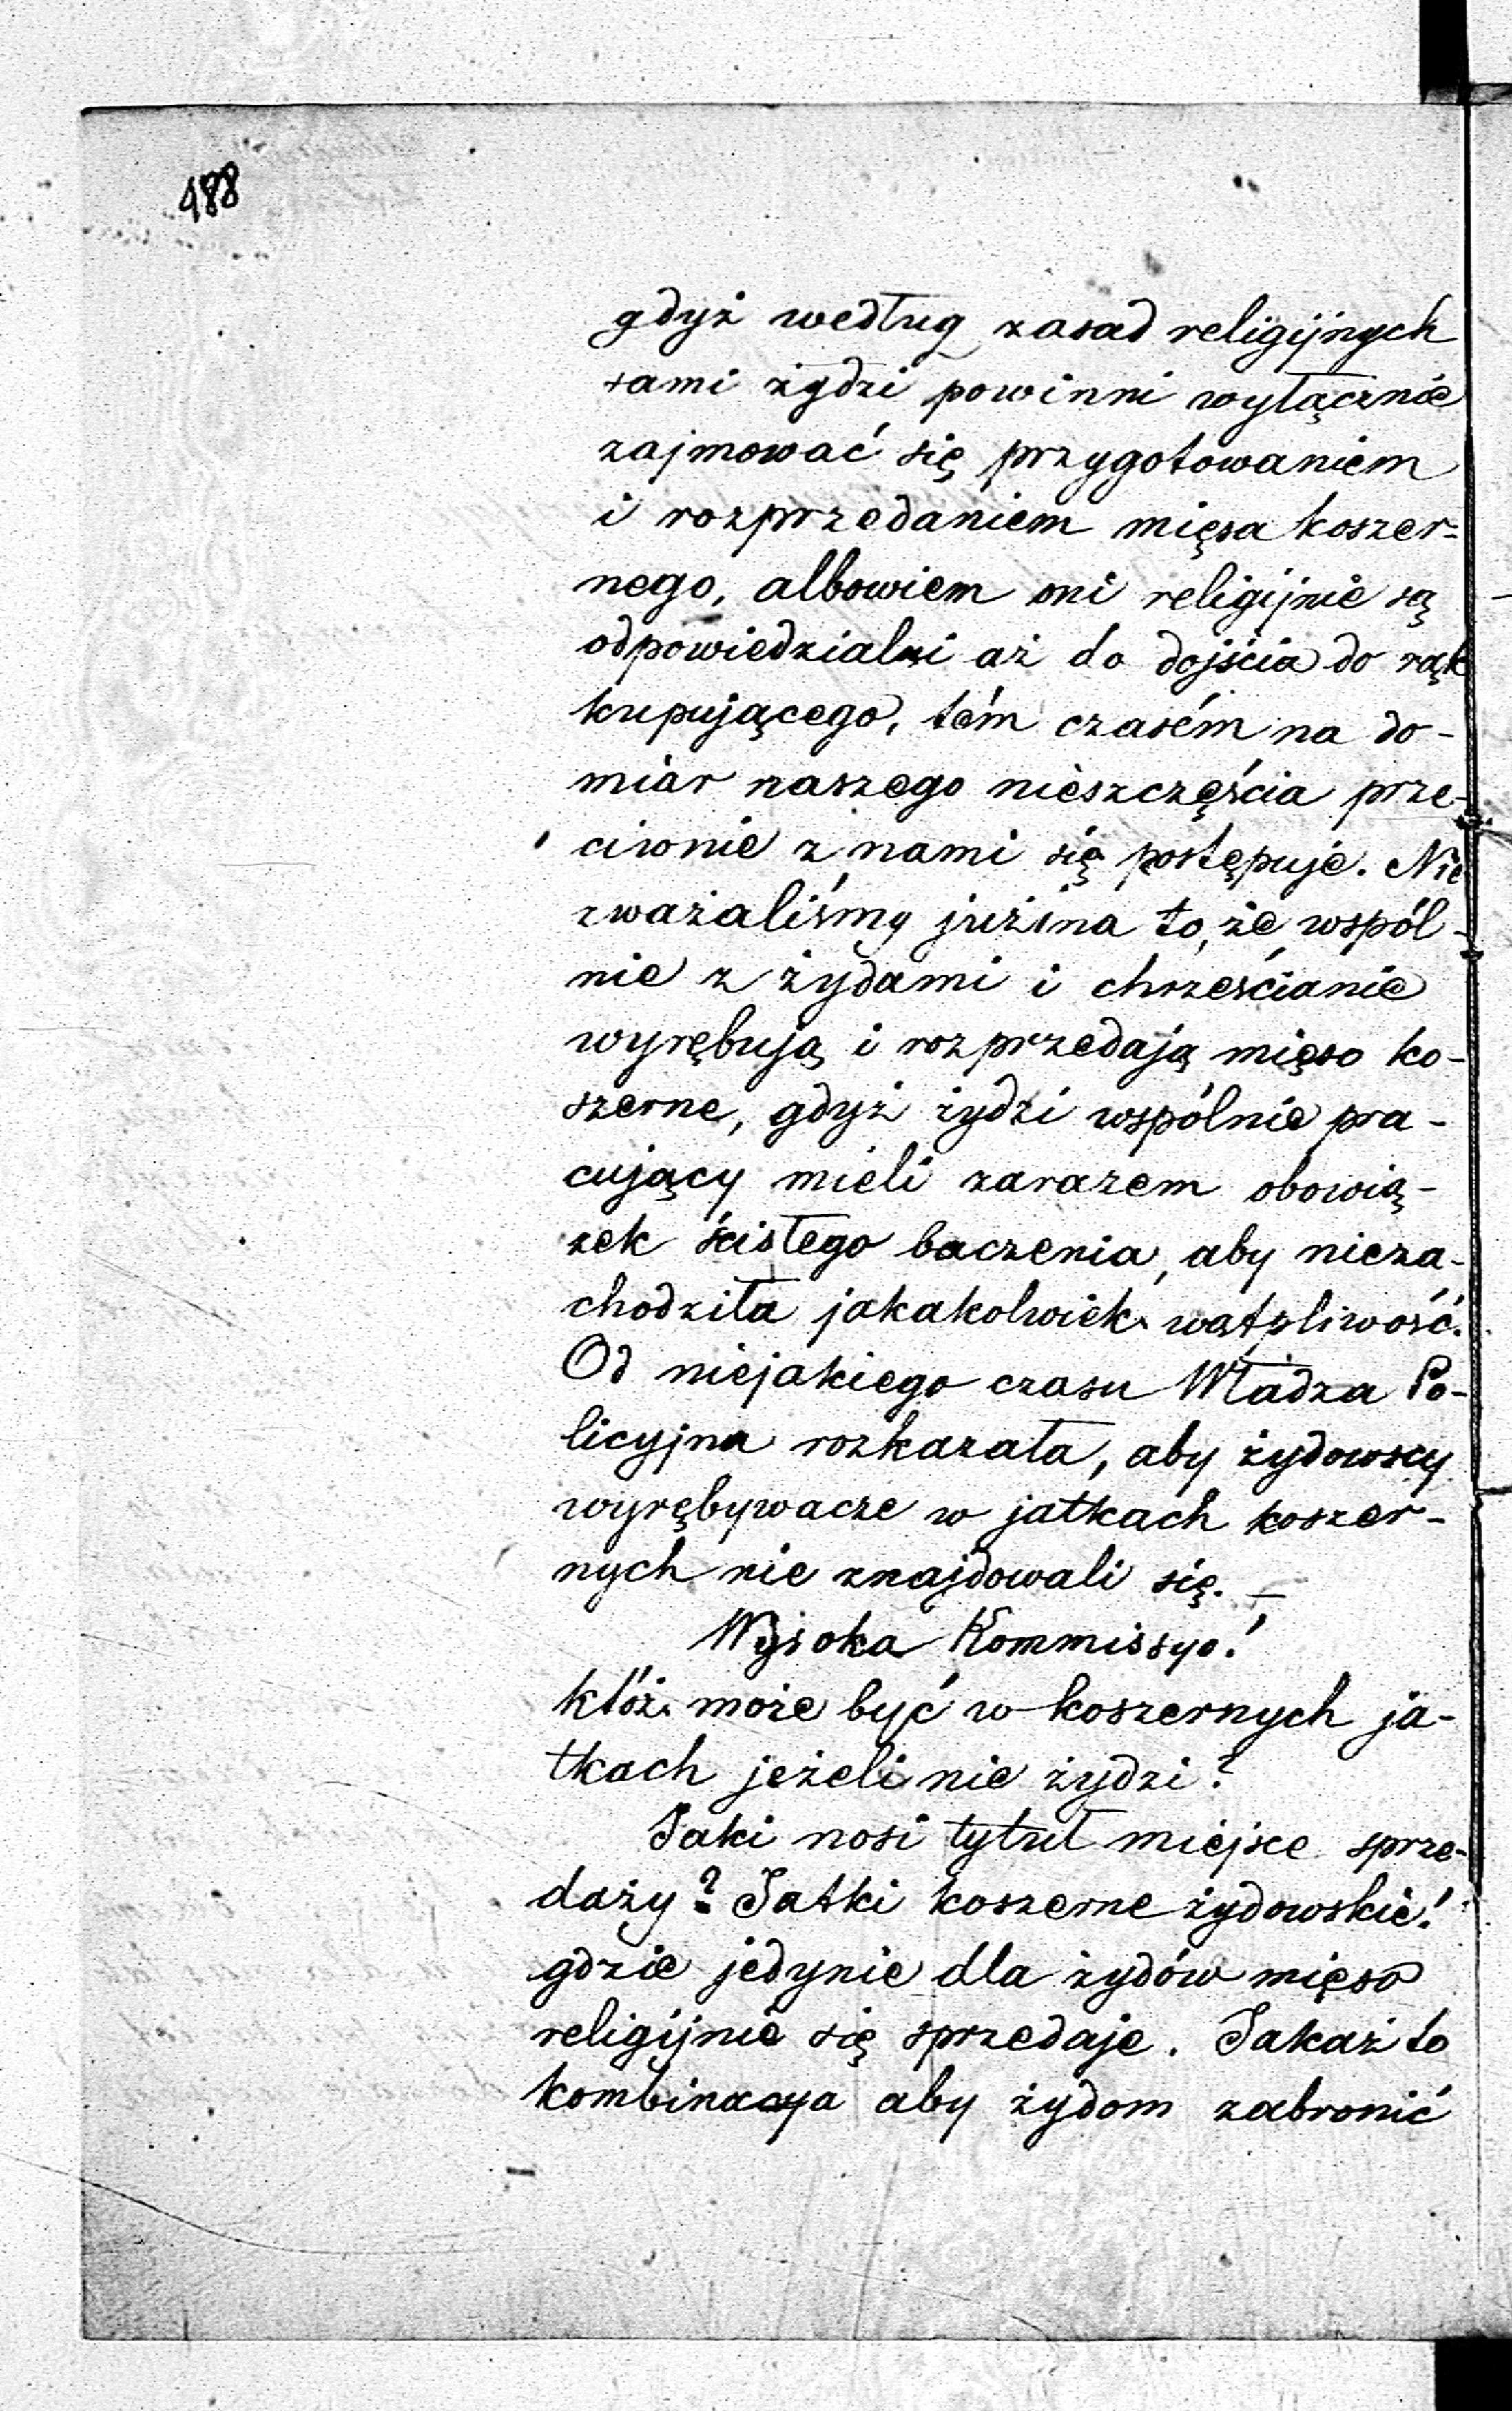 488
gdyż według zasad religijnych
sami żydzi powinni wyłącznie
zajmować się przygotowaniem
i rozprzedaniem mięsa koszer-
nego, albowiem oni religijnie są
odpowiedzialni aż do dojścia do rąk
kupującego, tém czasém na do-
miar naszego nieszczęścia prze-
ciwnie z nami się postępuje. Nie
zważaliśmy już na to, że wspól-
nie z żydami i chrześcianie
wyrębują i rozprzedają mięso ko-
szerne, gdyż żydzi wspólnie pra-
cujący mieli zarazem obowią-
zek ścisłego baczenia, aby nieza-
chodziła jakakolwiek wątpliwość.
Od niejakiego czasu Władza Po-
licyjna rozkazała, aby żydowscy
wyrębywacze w jatkach koszer-
nych nie znajdowali się. —
Wysoka Kommissyo!
któż może być w koszernych ja-
tkach jeżeli nie żydzi?
Jaki nosi tytuł miejsce sprze-
daży? Jatki koszerne żydowskie!
gdzie jedynie dla żydów mięso
religijnie się sprzedaje. Jakaż to
kombinacya aby żydom zabronić